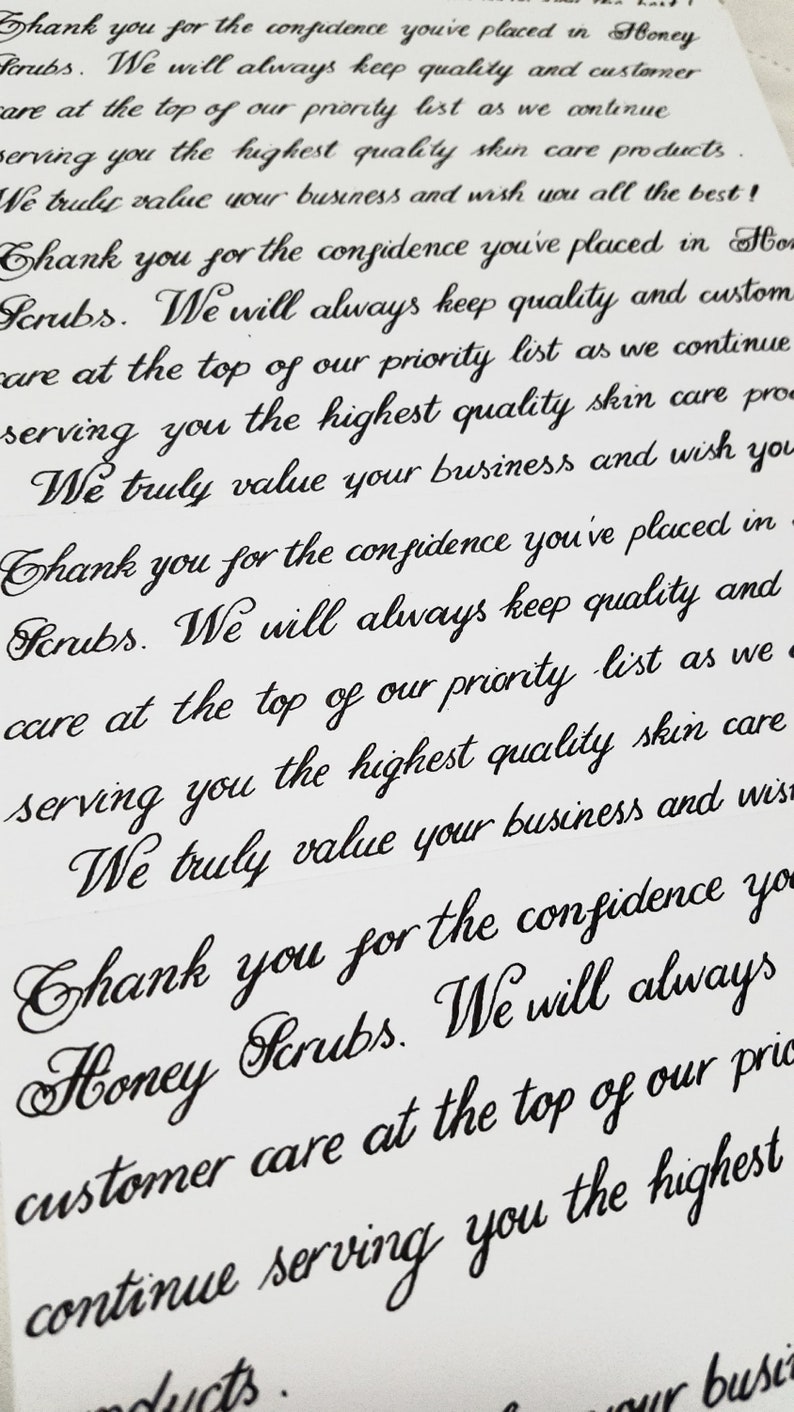 Thank you for the confidence you've placed in Honey
Scrubs. We will always keep quality and customer
care at the top of our priority list as we continue
serving you the highest quality skin care products.
We truly value your business and wish you all the best!
Thank you for the confidence you've placed in Hon
Scrubs. We will always keep quality and custom
care at the top of our priority list as we continue
serving you the highest quality skin care pro
We truly value your business and wish you
Thank you for the confidence you've placed in
Scrubs. We will always keep quality and
care at the top of our priority list as we
serving you the highest quality skin care
We truly value your business and wis
Thank you for the confidence yo
Honey Scrubs. We will always
customer care at the top of our prio
continue serving you the highest
ducts.
your busi